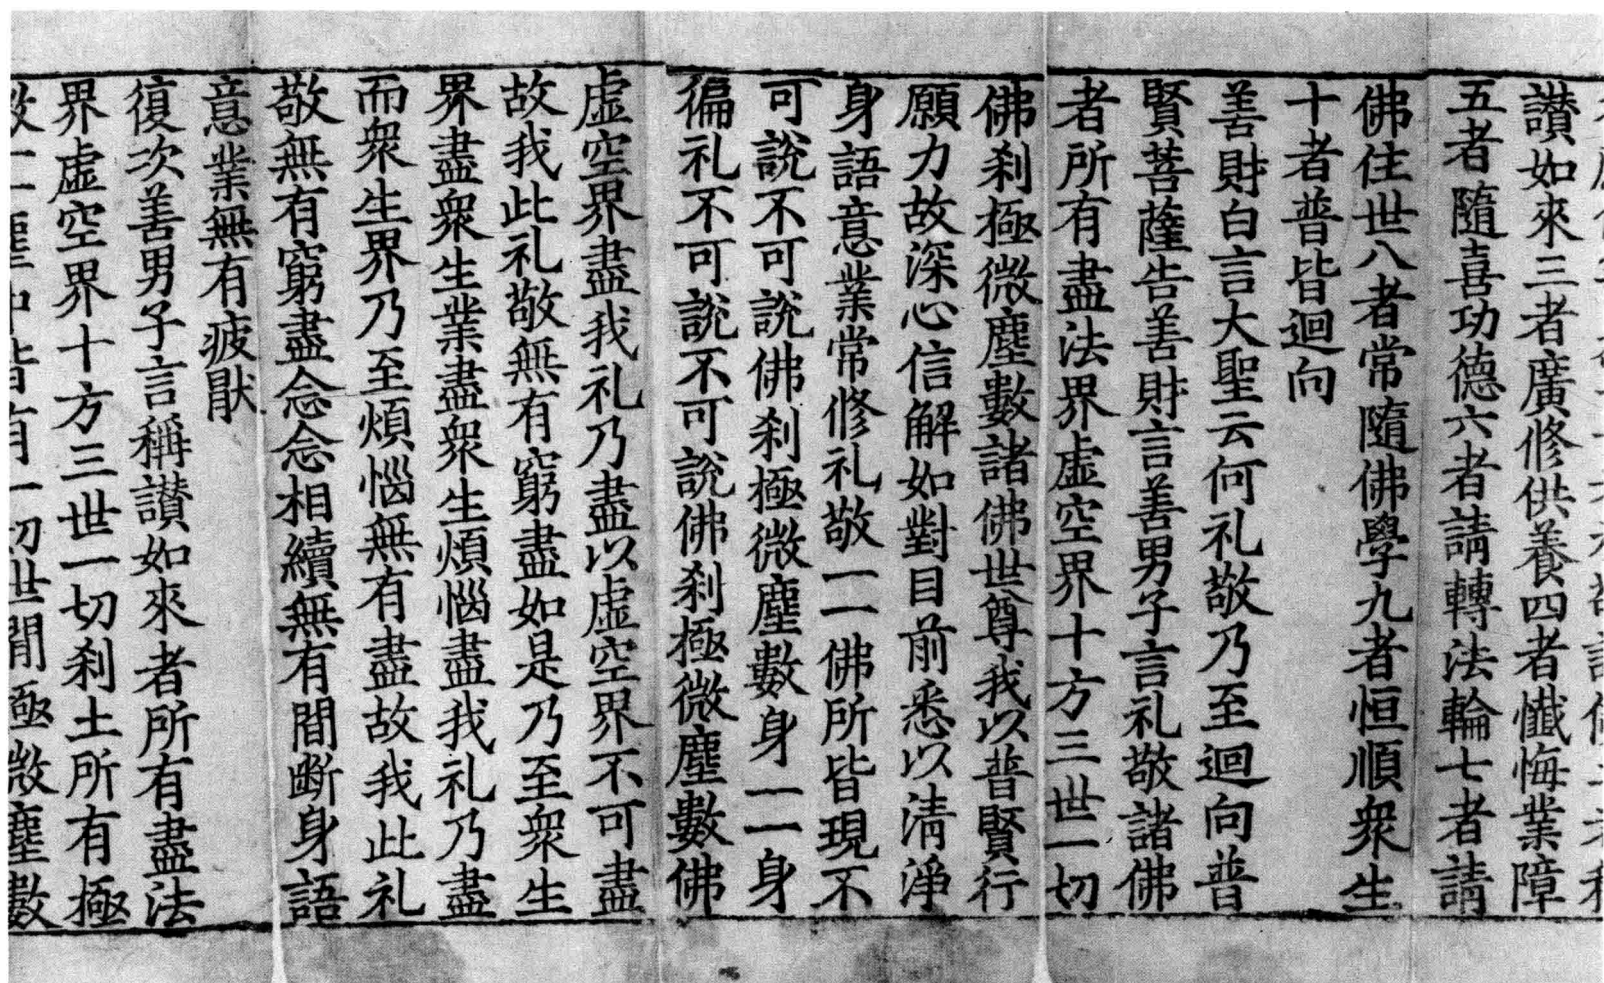 讃如來三者廣修供養四者懺悔業障
五者隨喜功德六者請轉法輪七者請
佛住世八者常隨佛學九者恒順衆生
十者普皆迴向
善財白言大聖云何礼敬乃至迴向普
賢菩薩告善財言善男子言礼敬諸佛
者所有盡法界虛空界十方三世一切
佛刹極微塵數諸佛世尊我以普賢行
願力故深心信解如對目前悉以清淨
身語意業常修礼敬一一佛所皆現不
可說不可說佛刹極微塵數身一一身
徧礼不可說不可說佛刹極微塵數佛
虛空界盡我礼乃盡以虛空界不可盡
故我此礼敬無有窮盡如是乃至衆生
界盡衆生業盡衆生煩惱盡我礼乃盡
而衆生界乃至煩惱無有盡故我此礼
敬無有窮盡念念相續無有間斷身語
意業無有疲猒
復次善男子言稱讃如來者所有盡法
界虛空界十方三世一切刹土所有極
微一一塵中皆有一切世間極微塵數